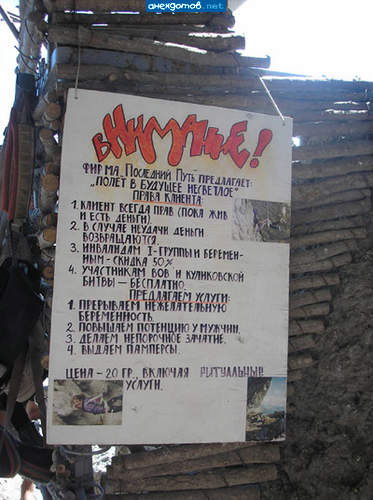 анекдотов.net
ВНИМАНИЕ!
ФИРМА „Последний Путь" ПРЕДЛАГАЕТ:
„ПОЛЁТ В БУДУЩЕЕ НЕСВЕТЛОЕ"
ПРАВА КЛИЕНТА:
1. КЛИЕНТ ВСЕГДА ПРАВ (ПОКА ЖИВ
И ЕСТЬ ДЕНЬГИ).
2. В СЛУЧАЕ НЕУДАЧИ ДЕНЬГИ
ВОЗВРАЩАЮТСЯ
3. ИНВАЛИДАМ I-ГРУППЫ И БЕРЕМЕН-
НЫМ - СКИДКА 50%
4. УЧАСТНИКАМ ВОВ И КУЛИКОВСКОЙ
БИТВЫ — БЕСПЛАТНО.
ПРЕДЛАГАЕМ УСЛУГИ:
1. ПРЕРЫВАЕМ НЕЖЕЛАТЕЛЬНУЮ
БЕРЕМЕННОСТЬ.
2. ПОВЫШАЕМ ПОТЕНЦИЮ У МУЖЧИН.
3. ДЕЛАЕМ НЕПОРОЧНОЕ ЗАЧАТИЕ.
4. ВЫДАЕМ ПАМПЕРСЫ.
ЦЕНА - 20 ГР., ВКЛЮЧАЯ РИТУАЛЬНЫЕ
УСЛУГИ.